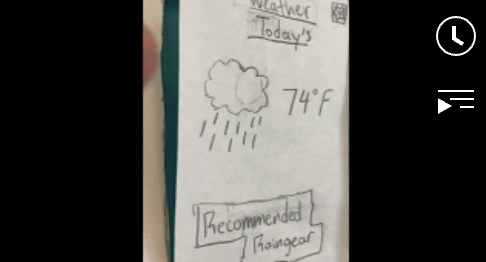 Weather
Today's
74°F
Recommended
Raingear